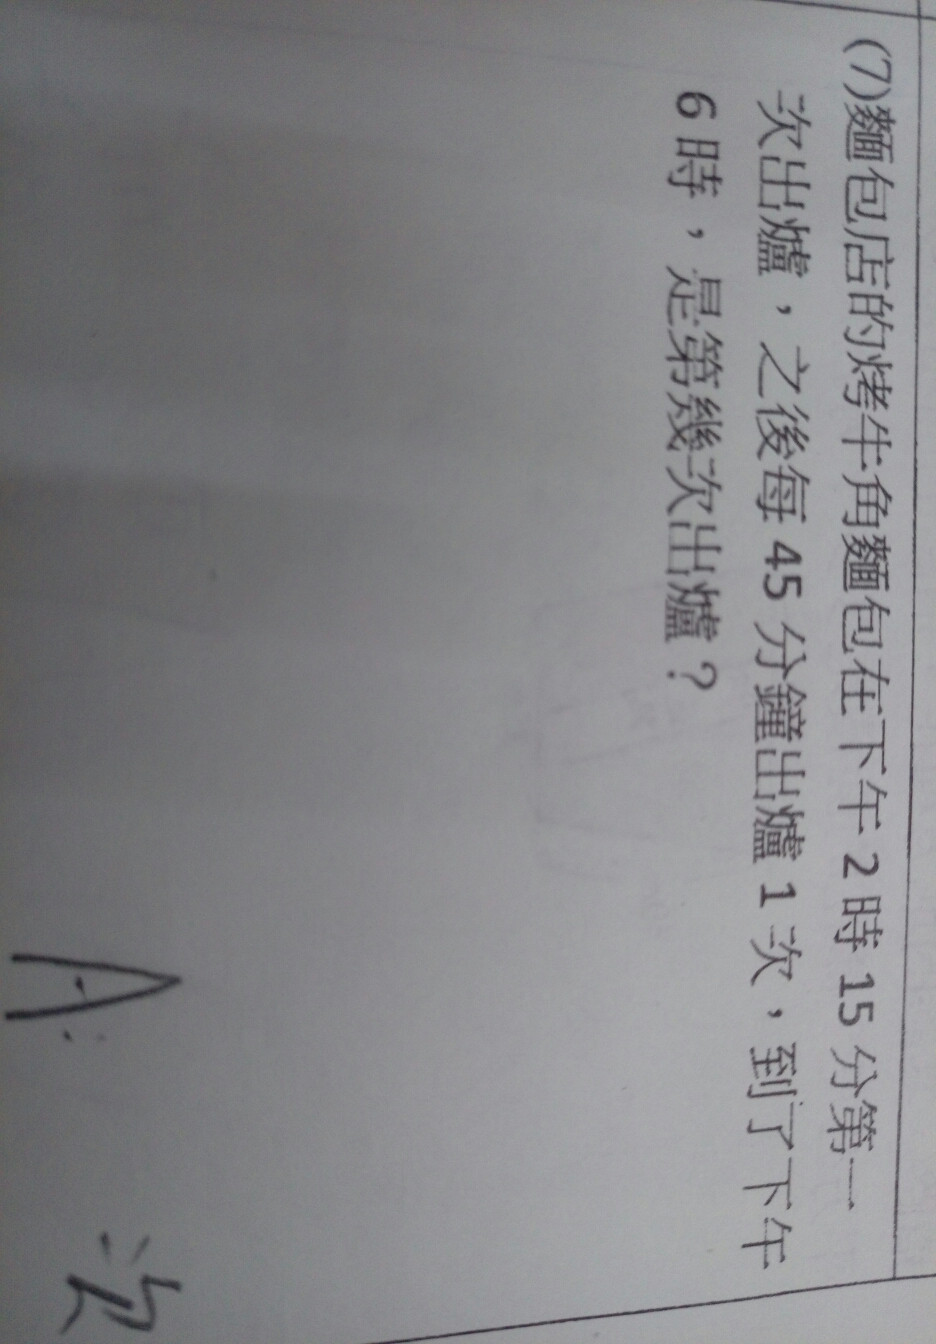 (7)麵包店的烤牛角麵包在下午2時15分第一
次出爐，之後每45分鐘出爐1次，到了下午
6時，是第幾次出爐？
A: 次